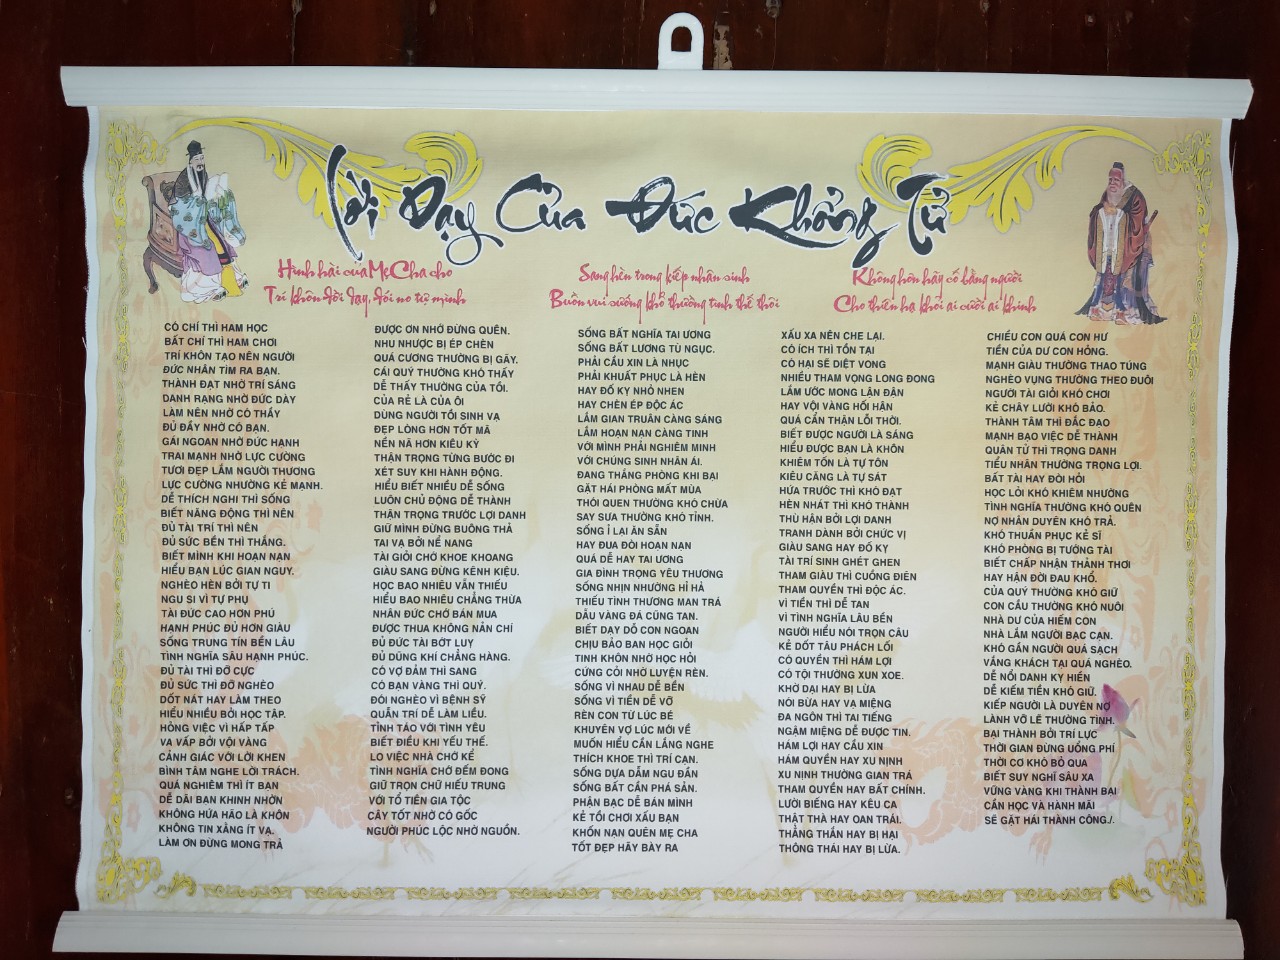 Lời Dạy Của Đức Khổng Tử
Hình hài của Mẹ Cha cho
Trí khôn đời dạy, đói no tự mình
Sang hèn trong kiếp nhân sinh
Buồn vui sướng khổ thường tình thế thôi
Không hơn hãy cố bằng người
Cho thiên hạ khỏi ai cười ai khinh
CÓ CHÍ THÌ HAM HỌC
BẤT CHÍ THÌ HAM CHƠI
TRÍ KHÔN TẠO NÊN NGƯỜI
ĐỨC NHÂN TÌM RA BẠN.
THÀNH ĐẠT NHỜ TRÍ SÁNG
DANH RẠNG NHỜ ĐỨC DÀY
LÀM NÊN NHỜ CÓ THẦY
ĐỦ ĐẦY NHỜ CÓ BẠN.
GÁI NGOAN NHỜ ĐỨC HẠNH
TRAI MẠNH NHỜ LỰC CƯỜNG
TƯƠI ĐẸP LẮM NGƯỜI THƯƠNG
LỰC CƯỜNG NHƯỜNG KẺ MẠNH.
DỄ THÍCH NGHI THÌ SỐNG
BIẾT NĂNG ĐỘNG THÌ NÊN
ĐỦ TÀI TRÍ THÌ NÊN
ĐỦ SỨC BỀN THÌ THẮNG.
BIẾT MÌNH KHI HOẠN NẠN
HIỂU BẠN LÚC GIAN NGUY.
NGHÈO HÈN BỞI TỰ TI
NGU SI VÌ TỰ PHỤ
TÀI ĐỨC CAO HƠN PHÚ
HẠNH PHÚC ĐỦ HƠN GIÀU
SỐNG TRUNG TÍN BỀN LÂU
TÌNH NGHĨA SÂU HẠNH PHÚC.
ĐỦ TÀI THÌ ĐỠ CỰC
ĐỦ SỨC THÌ ĐỠ NGHÈO
DỐT NÁT HAY LÀM THEO
HIỂU NHIỀU BỞI HỌC TẬP.
HỎNG VIỆC VÌ HẤP TẤP
VA VẤP BỞI VỘI VÀNG
CẢNH GIÁC VỚI LỜI KHEN
BÌNH TÂM NGHE LỜI TRÁCH.
QUÁ NGHIÊM THÌ ÍT BẠN
DỄ DÃI BẠN KHINH NHỜN
KHÔNG HỨA HÃO LÀ KHÔN
KHÔNG TIN XẰNG ÍT VẠ.
LÀM ƠN ĐỪNG MONG TRẢ
ĐƯỢC ƠN NHỚ ĐỪNG QUÊN.
NHU NHƯỢC BỊ ÉP CHÈN
QUÁ CƯƠNG THƯỜNG BỊ GÃY.
CÁI QUÝ THƯỜNG KHÓ THẤY
DỄ THẤY THƯỜNG CỦA TỒI.
CỦA RẺ LÀ CỦA ÔI
DÙNG NGƯỜI TỒI SINH VẠ
ĐẸP LÒNG HƠN TỐT MÃ
NỀN NÃ HƠN KIÊU KỲ
THẬN TRỌNG TỪNG BƯỚC ĐI
XÉT SUY KHI HÀNH ĐỘNG.
HIỂU BIẾT NHIỀU DỄ SỐNG
LUÔN CHỦ ĐỘNG DỄ THÀNH
THẬN TRỌNG TRƯỚC LỢI DANH
GIỮ MÌNH ĐỪNG BUÔNG THẢ
TAI VẠ BỞI NỂ NANG
TÀI GIỎI CHỚ KHOE KHOANG
GIÀU SANG ĐỪNG KÊNH KIỆU.
HỌC BAO NHIÊU VẪN THIẾU
HIỂU BAO NHIÊU CHẲNG THỪA
NHÂN ĐỨC CHỚ BÁN MUA
ĐƯỢC THUA KHÔNG NẢN CHÍ
ĐỦ ĐỨC TÀI BỚT LUỴ
ĐỦ DŨNG KHÍ CHẲNG HÀNG.
CÓ VỢ ĐẢM THÌ SANG
CÓ BẠN VÀNG THÌ QUÝ.
ĐÓI NGHÈO VÌ BỆNH SỸ
QUẪN TRÍ DỄ LÀM LIỀU.
TỈNH TÁO VỚI TÌNH YÊU
BIẾT ĐIỀU KHI YẾU THẾ.
LO VIỆC NHÀ CHỚ KỂ
TÌNH NGHĨA CHỚ ĐẾM ĐONG
GIỮ TRỌN CHỮ HIẾU TRUNG
VỚI TỔ TIÊN GIA TỘC
CÂY TỐT NHỜ CÓ GỐC
NGƯỜI PHÚC LỘC NHỜ NGUỒN.
SỐNG BẤT NGHĨA TAI ƯƠNG
SỐNG BẤT LƯƠNG TÙ NGỤC.
PHẢI CẦU XIN LÀ NHỤC
PHẢI KHUẤT PHỤC LÀ HÈN
HAY ĐỐ KỴ NHỎ NHEN
HAY CHÈN ÉP ĐỘC ÁC
LẮM GIAN TRUÂN CÀNG SÁNG
LẮM HOẠN NẠN CÀNG TINH
VỚI MÌNH PHẢI NGHIÊM MINH
VỚI CHÚNG SINH NHÂN ÁI.
ĐANG THẮNG PHÒNG KHI BẠI
GẶT HÁI PHÒNG MẤT MÙA
THÓI QUEN THƯỜNG KHÓ CHỪA
SAY SƯA THƯỜNG KHÓ TỈNH.
SỐNG Ỉ LẠI ĂN SẴN
HAY ĐUA ĐÒI HOẠN NẠN
QUÁ DỄ HAY TAI ƯƠNG
GIA ĐÌNH TRỌNG YÊU THƯƠNG
SỐNG NHỊN NHƯỜNG HỈ HẢ
THIẾU TÌNH THƯƠNG MAN TRÁ
DẪU VÀNG ĐÁ CŨNG TAN.
BIẾT DẠY DỖ CON NGOAN
CHỊU BẢO BAN HỌC GIỎI
TINH KHÔN NHỜ HỌC HỎI
CỨNG CỎI NHỜ LUYỆN RÈN.
SỐNG VÌ NHAU DỄ BỀN
SỐNG VÌ TIỀN DỄ VỠ
RÈN CON TỪ LÚC BÉ
KHUYÊN VỢ LÚC MỚI VỀ
MUỐN HIỂU CẦN LẮNG NGHE
THÍCH KHOE THÌ TRÍ CẠN.
SỐNG DỰA DẪM NGU ĐẦN
SỐNG BẤT CẦN PHÁ SẢN.
PHẬN BẠC DỄ BÁN MÌNH
KẺ TỒI CHƠI XẤU BẠN
KHỐN NẠN QUÊN MẸ CHA
TỐT ĐẸP HÃY BÀY RA
XẤU XA NÊN CHE LẠI.
CÓ ÍCH THÌ TỒN TẠI
CÓ HẠI SẼ DIỆT VONG
NHIỀU THAM VỌNG LONG ĐONG
LẮM ƯỚC MONG LẬN ĐẬN
HAY VỘI VÀNG HỐI HẬN
QUÁ CẨN THẬN LỖI THỜI.
BIẾT ĐƯỢC NGƯỜI LÀ SÁNG
HIỂU ĐƯỢC BẠN LÀ KHÔN
KHIÊM TỐN LÀ TỰ TÔN
KIÊU CĂNG LÀ TỰ SÁT
HỨA TRƯỚC THÌ KHÓ ĐẠT
HÈN NHÁT THÌ KHÓ THÀNH
THÙ HẬN BỞI LỢI DANH
TRANH DÀNH BỞI CHỨC VỊ
GIÀU SANG HAY ĐỐ KỴ
TÀI TRÍ SINH GHÉT GHEN
THAM GIÀU THÌ CUỒNG ĐIÊN
THAM QUYỀN THÌ ĐỘC ÁC.
VÌ TIỀN THÌ DỄ TAN
VÌ TÌNH NGHĨA LÂU BỀN
NGƯỜI HIỂU NÓI TRỌN CÂU
KẺ DỐT TÂU PHÁCH LỐI
CÓ QUYỀN THÌ HÁM LỢI
CÓ TỘI THƯỜNG XUN XOE.
KHỜ DẠI HAY BỊ LỪA
NÓI BỪA HAY VẠ MIỆNG
ĐA NGÔN THÌ TAI TIẾNG
NGẬM MIỆNG DỄ ĐƯỢC TIN.
HÁM LỢI HAY CẦU XIN
HÁM QUYỀN HAY XU NỊNH
XU NỊNH THƯỜNG GIAN TRÁ
THAM QUYỀN HAY BẤT CHÍNH.
LƯỜI BIẾNG HAY KÊU CA
THẬT THÀ HAY OAN TRÁI.
THẲNG THẮN HAY BỊ HẠI
THÔNG THÁI HAY BỊ LỪA.
CHIỀU CON QUÁ CON HƯ
TIỀN CỦA DƯ CON HỎNG.
MẠNH GIÀU THƯỜNG THAO TÚNG
NGHÈO VỤNG THƯỜNG THEO ĐUÔI
NGƯỜI TÀI GIỎI KHÓ CHƠI
KẺ CHÂY LƯỜI KHÓ BẢO.
THÀNH TÂM THÌ ĐẮC ĐẠO
MẠNH BẠO VIỆC DỄ THÀNH
QUÂN TỬ THÌ TRỌNG DANH
TIỂU NHÂN THƯỜNG TRỌNG LỢI.
BẤT TÀI HAY ĐÒI HỎI
HỌC LỎI KHÓ KHIÊM NHƯỜNG
TÌNH NGHĨA THƯỜNG KHÓ QUÊN
NỢ NHÂN DUYÊN KHÓ TRẢ.
KHÓ THUẦN PHỤC KẺ SĨ
KHÓ PHÒNG BỊ TƯỚNG TÀI
BIẾT CHẤP NHẬN THẢNH THƠI
HAY HẬN ĐỜI ĐAU KHỔ.
CỦA QUÝ THƯỜNG KHÓ GIỮ
CON CẦU THƯỜNG KHÓ NUÔI
NHÀ DƯ CỦA HIẾM CON
NHÀ LẮM NGƯỜI BẠC CẠN.
KHÓ GẦN NGƯỜI QUÁ SẠCH
VẮNG KHÁCH TẠI QUÁ NGHÈO.
DỄ NỔI DANH KỴ HIỀN
DỄ KIẾM TIỀN KHÓ GIỮ.
KIẾP NGƯỜI LÀ DUYÊN NỢ
LÀNH VỠ LẼ THƯỜNG TÌNH.
BẠI THÀNH BỞI TRÍ LỰC
THỜI GIAN ĐỪNG UỔNG PHÍ
THỜI CƠ KHÓ BỎ QUA
BIẾT SUY NGHĨ SÂU XA
VỮNG VÀNG KHI THÀNH BẠI
CẦN HỌC VÀ HÀNH MÃI
SẼ GẶT HÁI THÀNH CÔNG./.